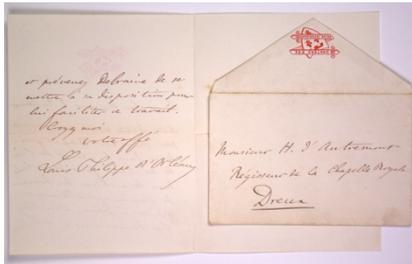 et prévenez Delvaine de se
mettre à sa disposition pour
lui faciliter ce travail.
Croyez moi
votre affé
Louis Philippe d'Orléans
Monsieur H. d'Autremont
Régisseur de la Chapelle Royale
Dreux